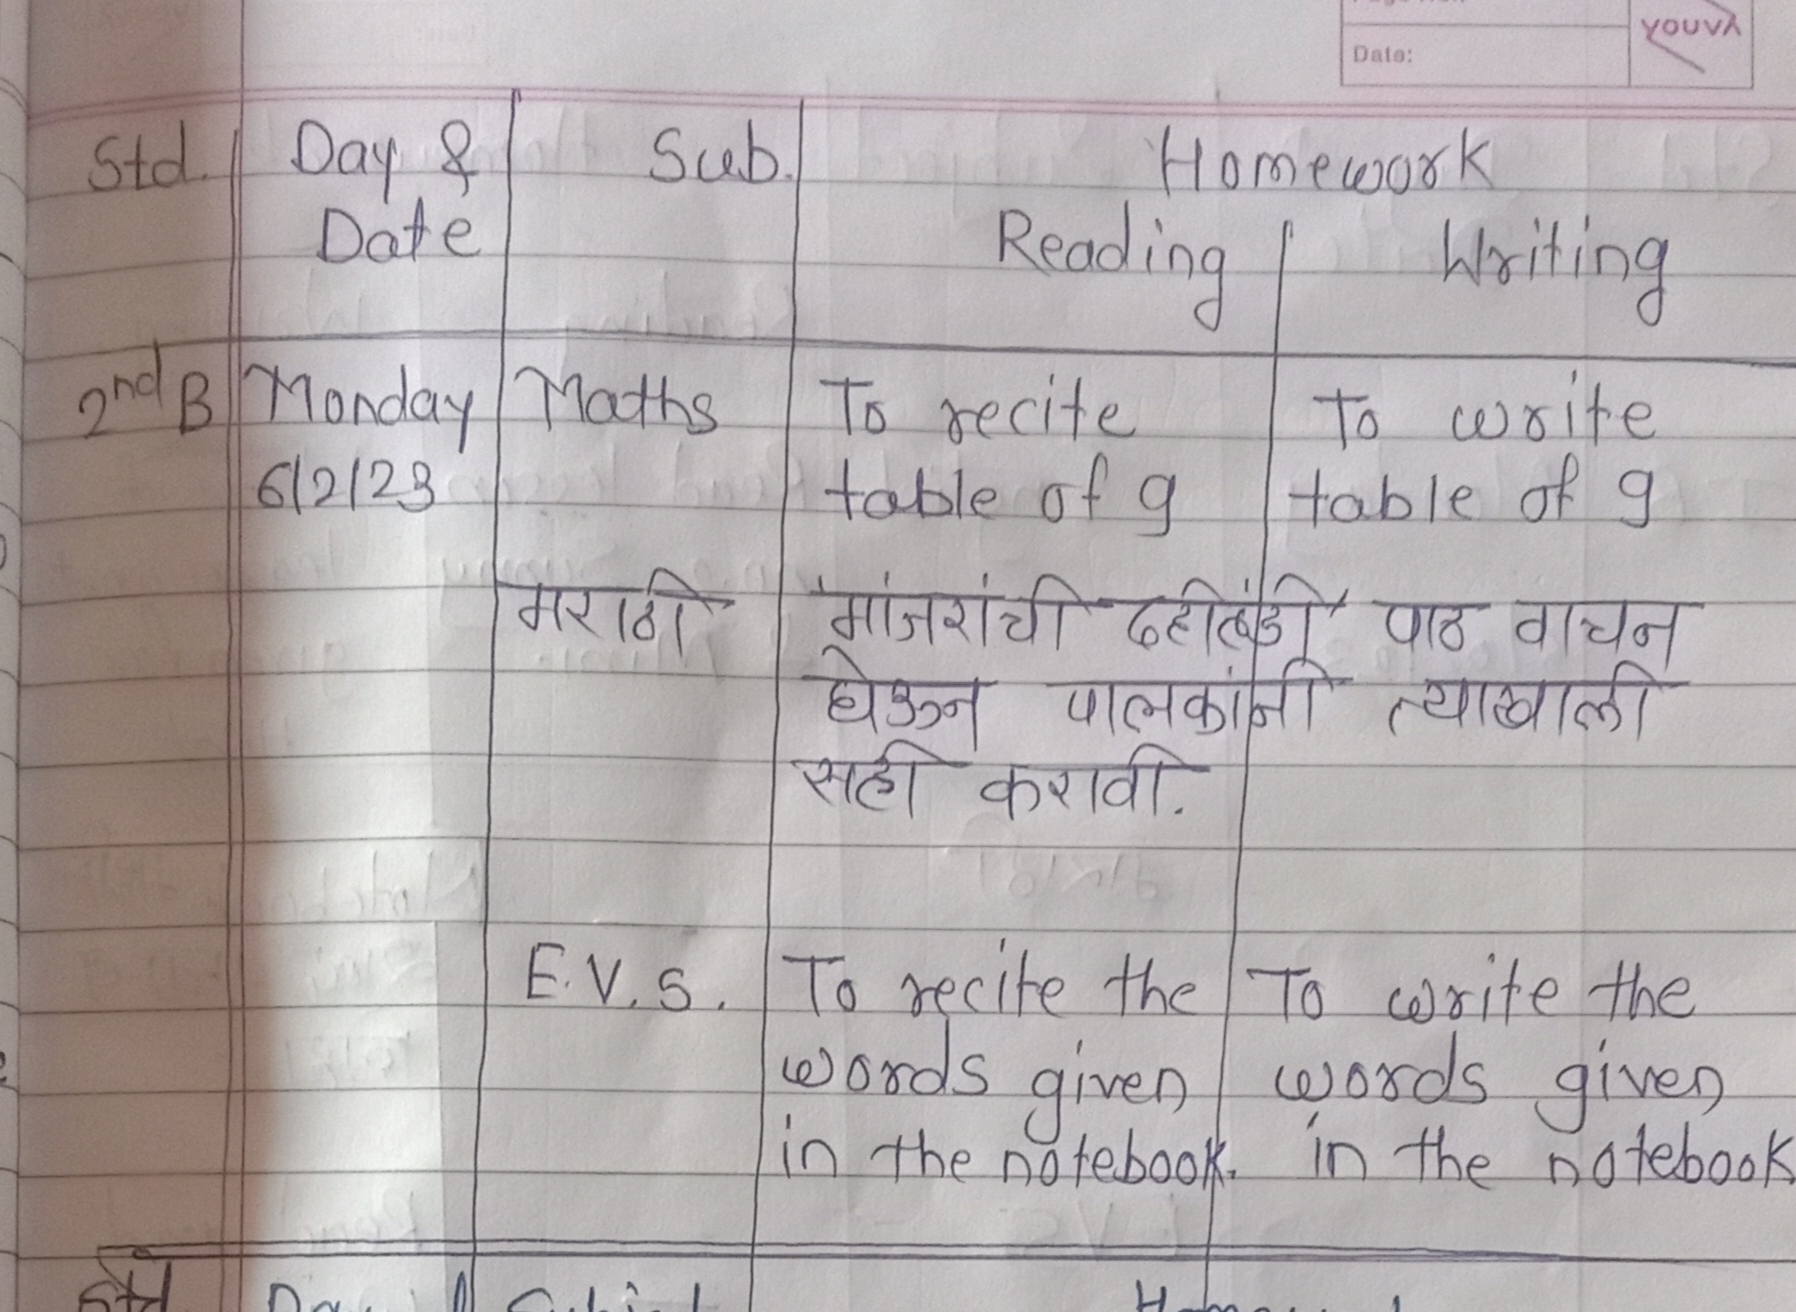 YOUVA
Date:
Std. Day & Sub. Homework
Date Reading Writing
2nd B Monday Maths To recite To write
6/2/23 table of 9 table of 9
मराठी 'मांजरांची दहीहंडी' पाठ वाचन
घेऊन पालकांनी त्याखाली
सही करावी.
E.V.S. To recite the To write the
words given words given
in the notebook. in the notebook
Std